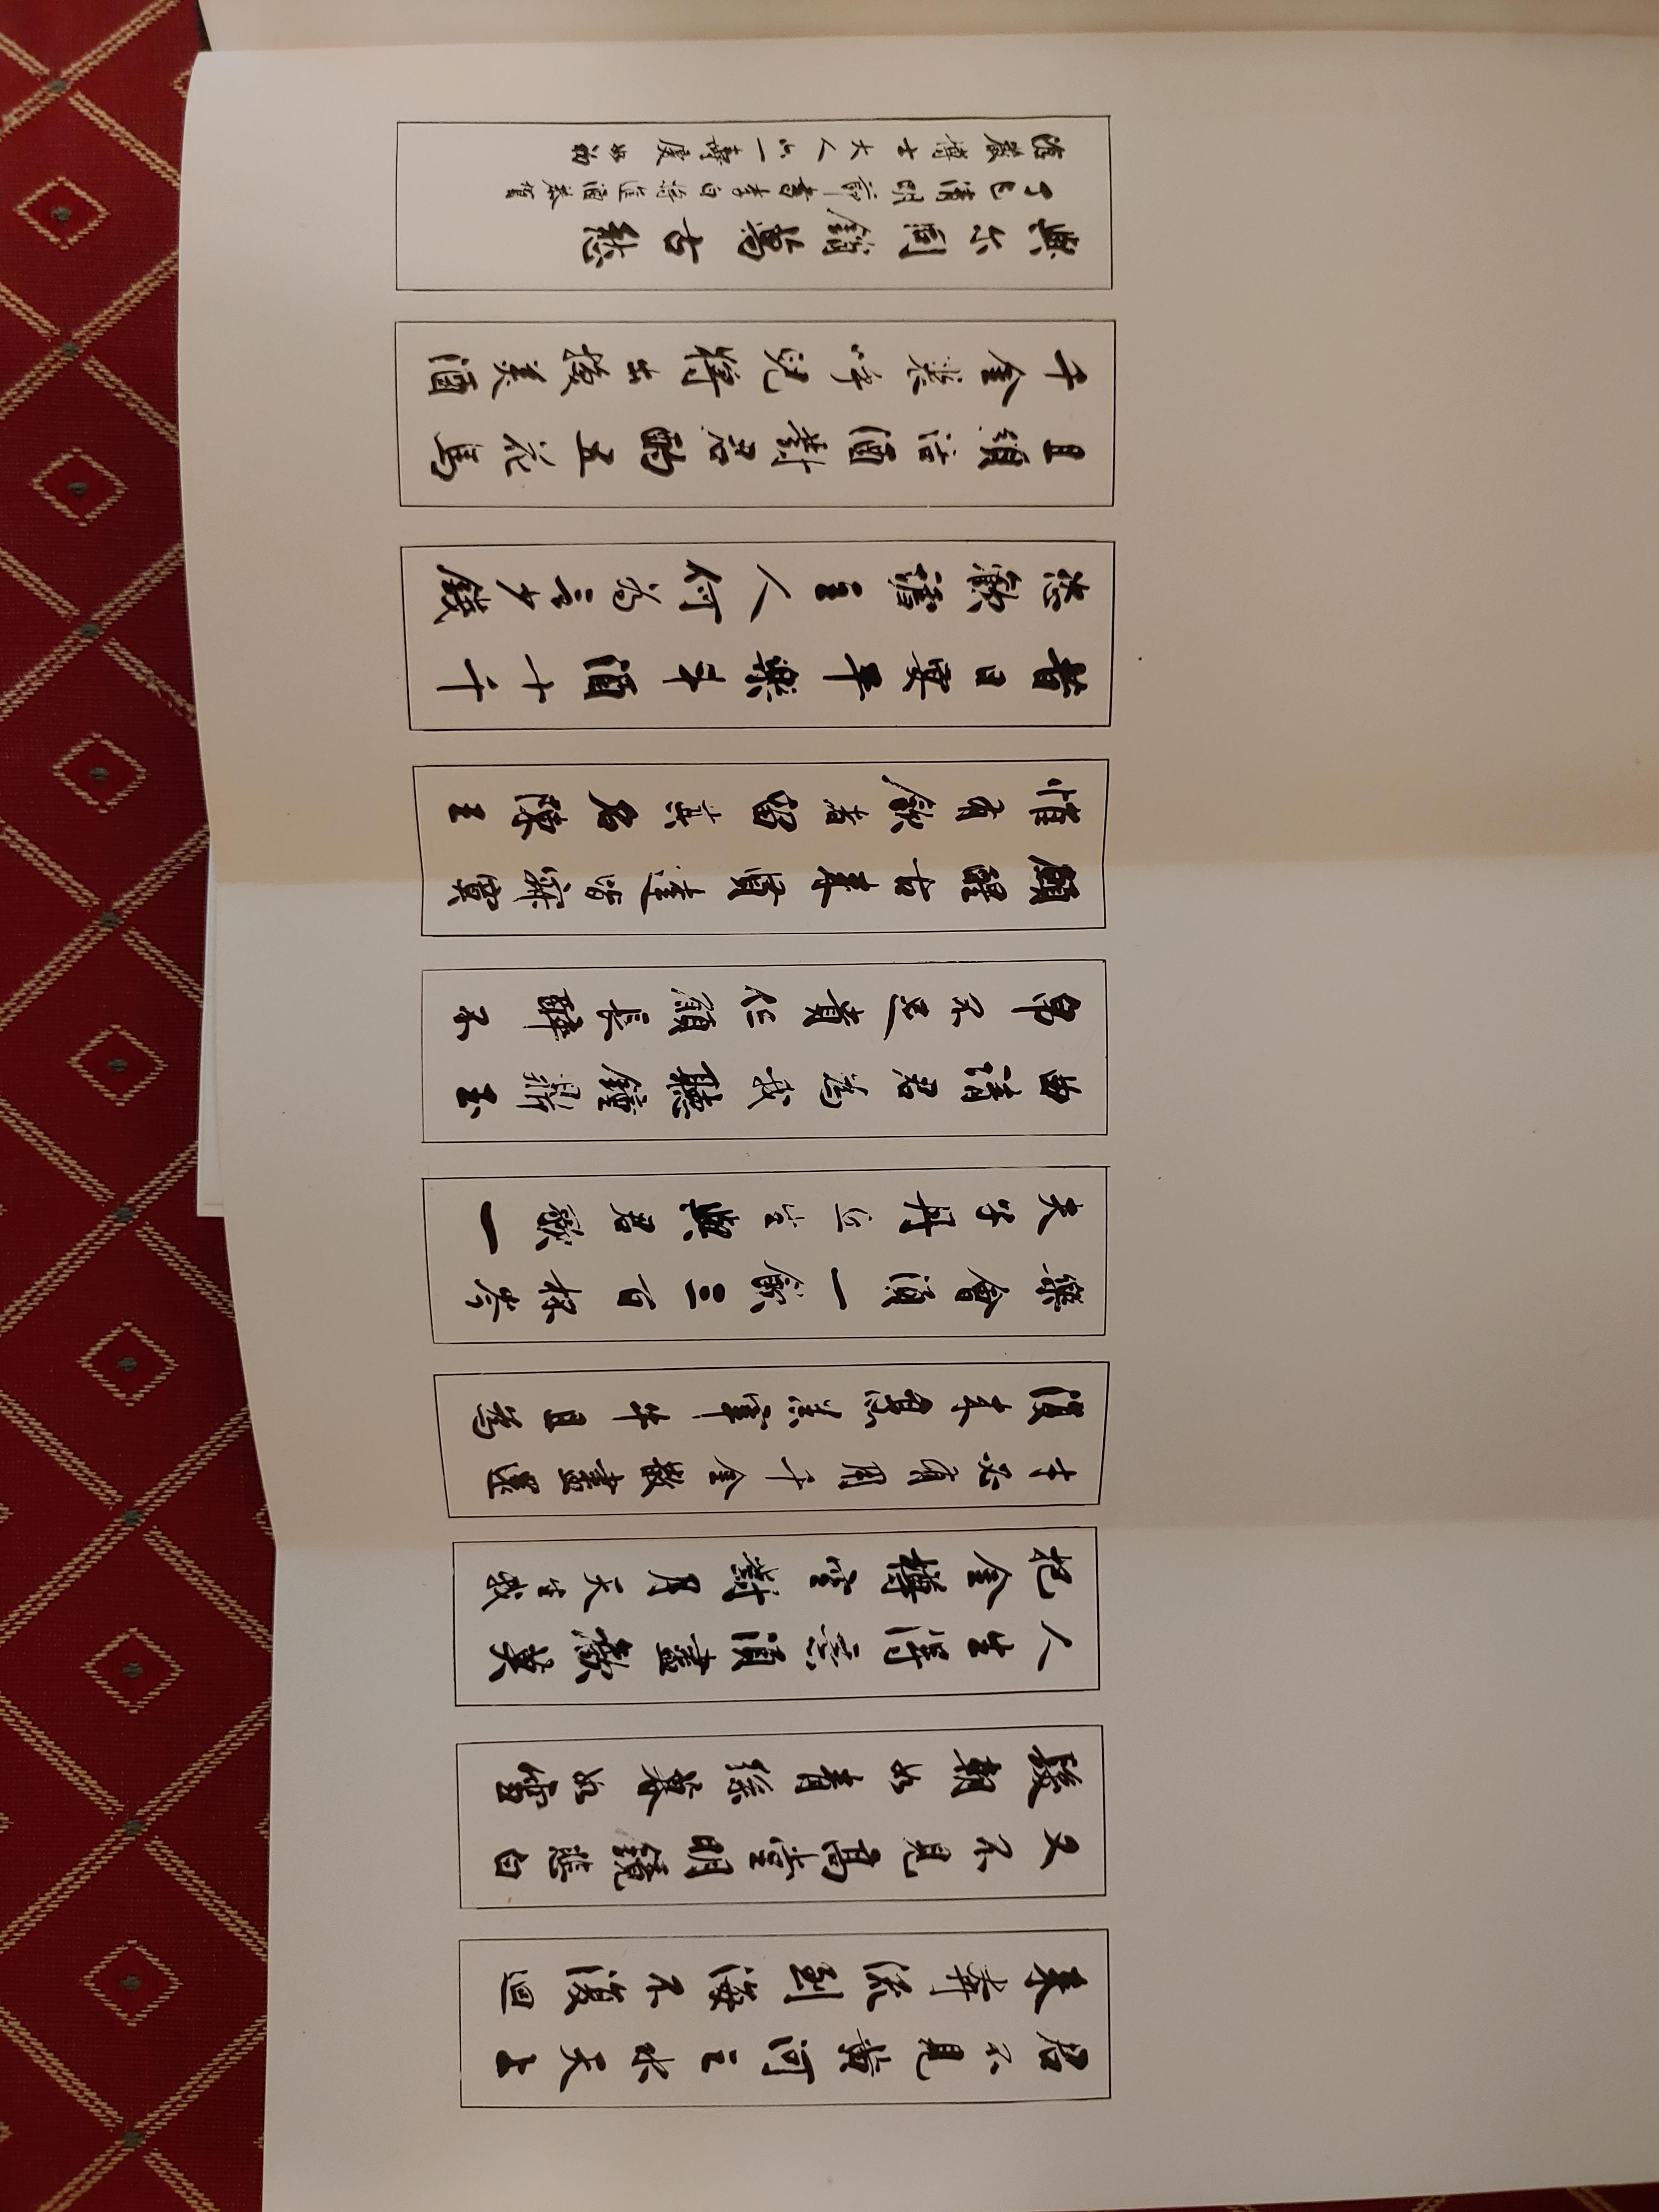 君不見黃河之水天上
來奔流到海不復迴
又不見高堂明鏡悲白
髮朝如青絲暮如雪
人生得意須盡歡莫
把金樽空對月天生我
才必有用千金散盡還
復來烹羔宰牛且為
樂會須一飲三百杯岑
夫子丹丘生與君歌一
曲請君為我聽鐘鼎玉
帛不足貴但願長醉不
願醒古來賢達皆寂寞
惟有飲者留其名陳王
昔日宴平樂斗酒十千
恣歡謔主人何為言少錢
且須沽酒對君酌五花馬
千金裘呼兒將出換美酒
與尔同銷萬古愁
丁巳清明節書李白將進酒恭賀
嚴博士大人六一壽慶 如初